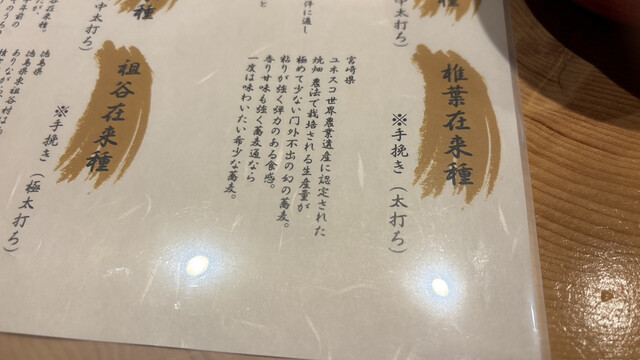 種
中太打ち）
椎葉在来種
※手挽き（太打ち）
宮崎県
ユネスコ世界農業遺産に認定された
焼畑農法で栽培される生産量が
極めて少ない門外不出の幻の蕎麦。
粘りが強く弾力のある食感。
香り甘味も強く蕎麦通なら
一度は味わいたい希少な蕎麦。
件に適し
と
種
中太打ち）
祖谷在来種
※手挽き（極太打ち）
徳島県
徳島県東祖谷村は
谷在来種。